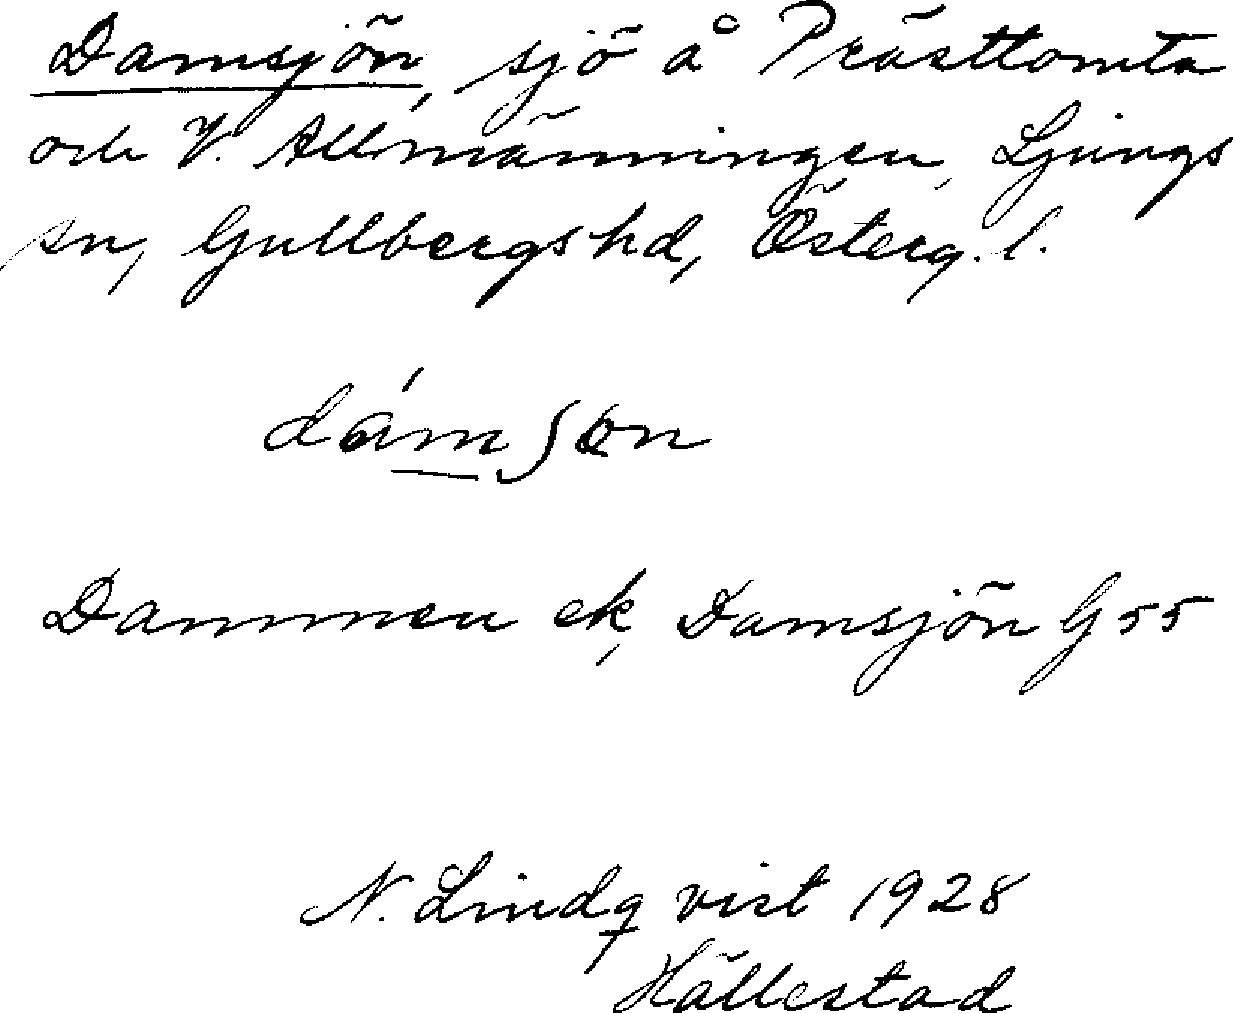 Damsjön, sjö å Prästtomta
och V. Allmänningen, Ljungs
sn, Gullbergs hd, Österg. l.
dámʃɵn
Dammen ek, Damsjön G 55
N. Lindqvist 1928
Hällestad